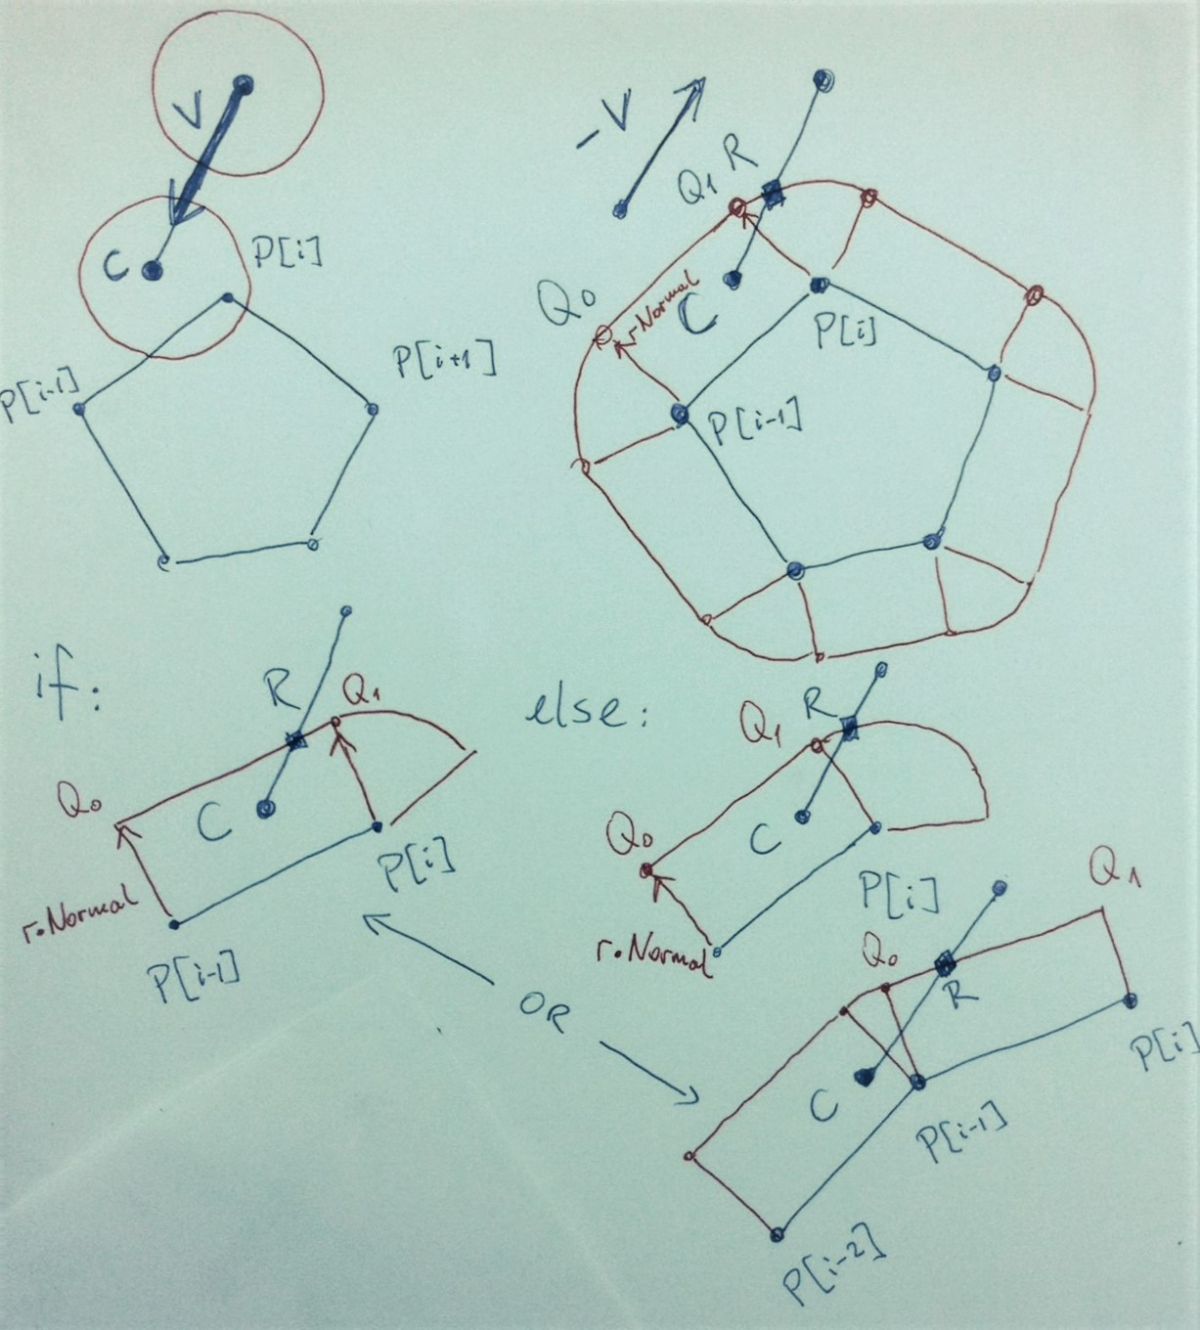 V
C
P[i]
P[i-1]
P[i+1]
-V
Q1
R
Q0
r·Normal
C
P[i]
P[i-1]
if:
R
Q1
Q0
C
r·Normal
P[i]
P[i-1]
else:
Q1
R
Q0
C
P[i]
r·Normal
OR
Q0
Q1
R
C
P[i]
P[i-1]
P[i-2]